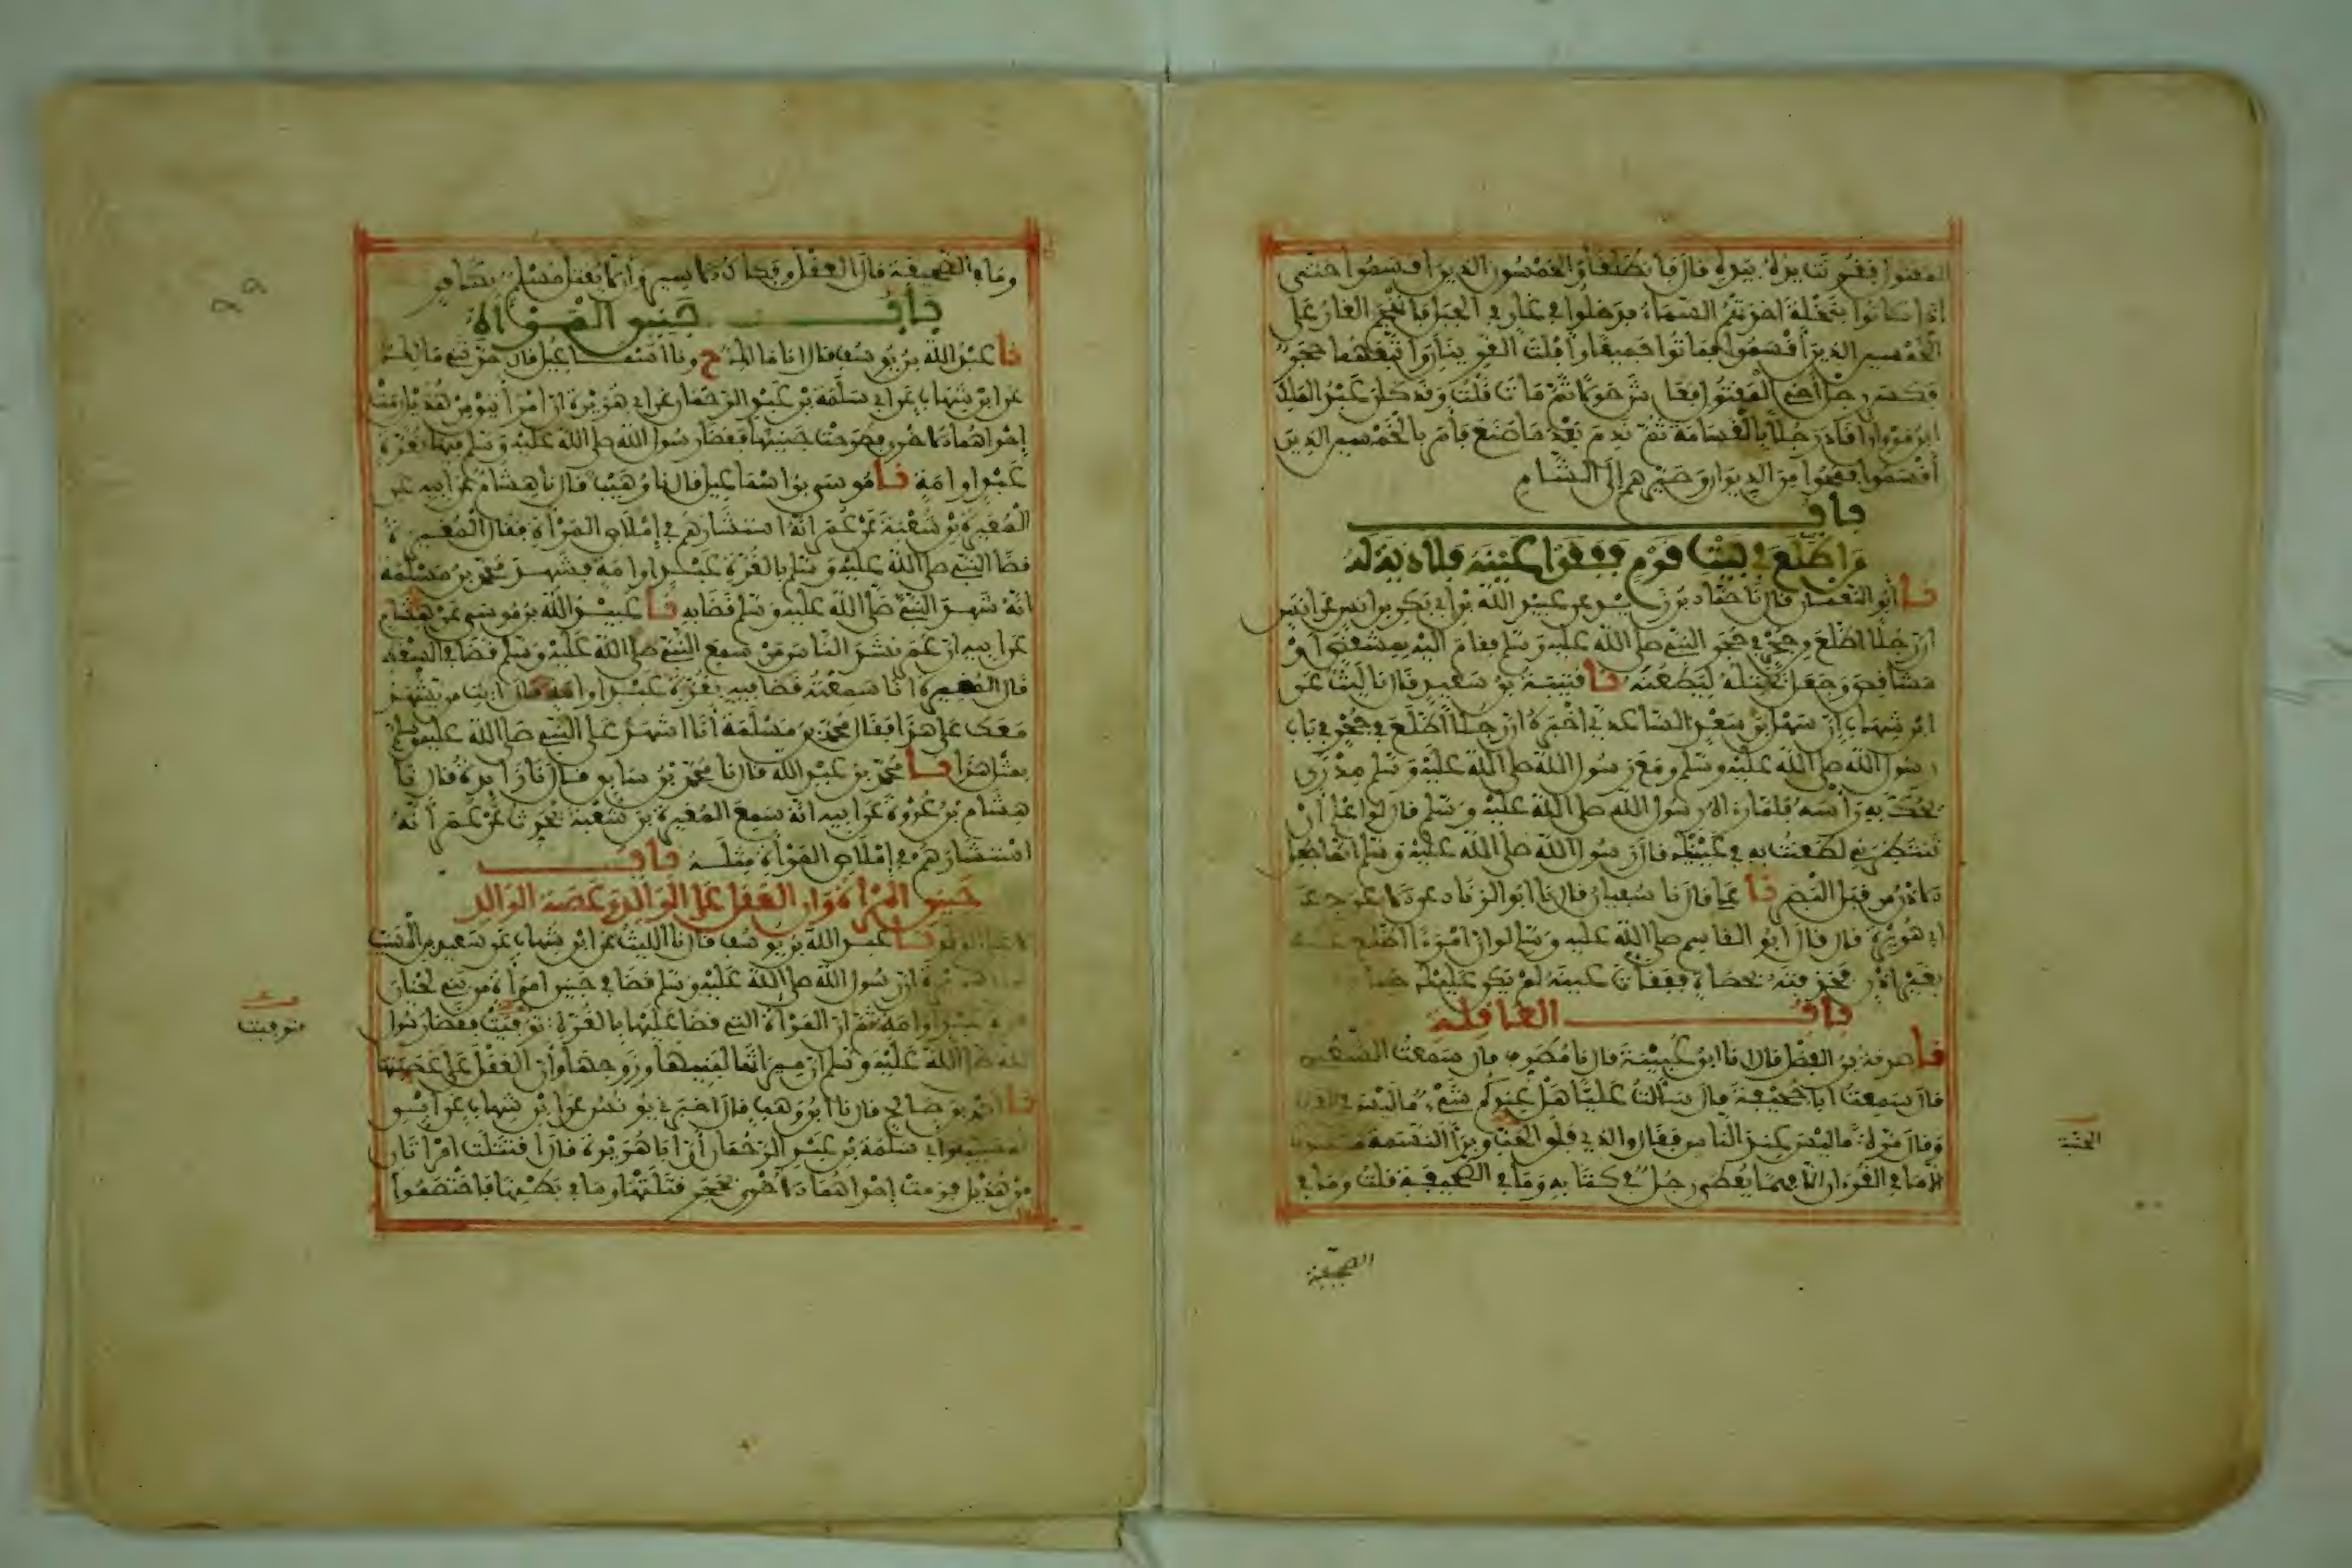 المقتول فقرنت يده بيده قال فانطلقا والخمسون الذين اقسموا حتى
اذا كانوا بنخلة اخذتهم السماء فدخلوا في غار في الجبل فانهجم الغار على
الخمسين الذين أقسموا فماتوا جميعا وأفلت القرينان واتبعهما حجر
فكسر رجل أخي المقتول فعاش حولا ثم مات قلت وقد كان عبد الملك
ابن مروان أقاد رجلا بالقسامة ثم ندم بعد ما صنع فأمر بالخمسين الذين
أقسموا فمحوا من الديوان وصيرهم إلى الشام
باب
من اطلع في بيت قوم ففقوا عينه فلا دية له
نا أبو النعمان قال نا حماد بن زيد عن عبيد الله بن أبي بكر بن انس عن انس
ان رجلا اطلع من جحر في حجر النبي صلى الله عليه وسلم فقام اليه بمشقص او
مشاقص وجعل يختله ليطعنه نا قتيبة بن سعيد قال نا ليث عن
ابن شهاب ان سهل بن سعد الساعدي اخبره ان رجلا اطلع في جحر في باب
رسول الله صلى الله عليه وسلم ومع رسول الله صلى الله عليه وسلم مدرى
يحك به رأسه فلما رءاه رسول الله صلى الله عليه وسلم قال لو اعلم أن
تنتظرني لطعنت به في عينيك قال رسول الله صلى الله عليه وسلم انما جعل
الاذن من قبل البصر نا علي قال نا سفيان قال نا ابو الزناد عن الاعرج عن
ابي هريرة قال قال ابو القاسم صلى الله عليه وسلم لو ان امرءا اطلع عليك
بغير اذن فخذفته بحصاة ففقأت عينه لم يكن عليك جناح
باب العاقلة
نا صدقة بن الفضل قال انا ابن عيينة قال نا مطرف قال سمعت الشعبي
قال سمعت ابا جحيفة قال سألت عليا هل عندكم شيء ما ليس في القرءان
وقال مرة ما ليس عند الناس فقال والذي فلق الحب وبرأ النسمة ما عندنا
الا ما في القرءان الا فهما يعطى رجل في كتابه وما في الصحيفة قلت وما في
الحبة
الصحيفة
وما في الصحيفة قال العقل وفكاك الاسير وألا يقتل مسلم بكافر
باب جنين المرأة
نا عبد الله بن يوسف قال انا مالك ح ونا اسماعيل قال حدثني مالك
عن ابن شهاب عن ابي سلمة بن عبد الرحمان عن ابي هريرة ان امرأتين من هذيل رمت
إحداهما الاخرى فطرحت جنينها فقضى رسول الله صلى الله عليه وسلم فيها بغرة
عبد او امة نا موسى بن اسماعيل قال نا وهيب قال نا هشام عن ابيه عن
المغيرة بن شعبة عن عمر انه استشارهم في إملاص المرأة فقال المغيرة
قضى النبي صلى الله عليه وسلم بالغرة عبد او امة فشهد محمد بن مسلمة
انه شهد النبي صلى الله عليه وسلم قضى به نا عبيد الله بن موسى عن هشام
عن ابيه ان عمر نشد الناس من سمع النبي صلى الله عليه وسلم قضى في السقط
قال المغيرة انا سمعته قضى فيه بغرة عبد او امة قال ايت من يشهد
معك على هذا فقال محمد بن مسلمة أنا اشهد على النبي صلى الله عليه وسلم
بمثل هذا نا محمد بن عبد الله قال نا محمد بن سابق قال نا زايدة قال نا
هشام بن عروة عن ابيه انه سمع المغيرة بن شعبة يحدث عن عمر أنه
استشارهم في إملاص المرأة مثله باب
جنين المرأة وان العقل على الوالد وعصبة الوالد
لا على الولد نا عبد الله بن يوسف قال نا الليث عن ابن شهاب عن سعيد بن المسيب
هريرة ان رسول الله صلى الله عليه وسلم قضى في جنين امرأة من بني لحيان
عبد او امة ثم ان المرأة التي قضى عليها بالغرة توفيت فقضى رسول
الله صلى الله عليه وسلم ان ميراثها لبنيها وزوجها وأن العقل على عصبتها
نا احمد بن صالح قال نا ابن وهب قال اخبرني يونس عن ابن شهاب عن ابن
المسيب وابي سلمة بن عبد الرحمان أن ابا هريرة قال اقتتلت امرأتان
من هذيل فرمت إحداهما الاخرى بحجر قتلتها وما في بطنها فاختصموا
توفيت